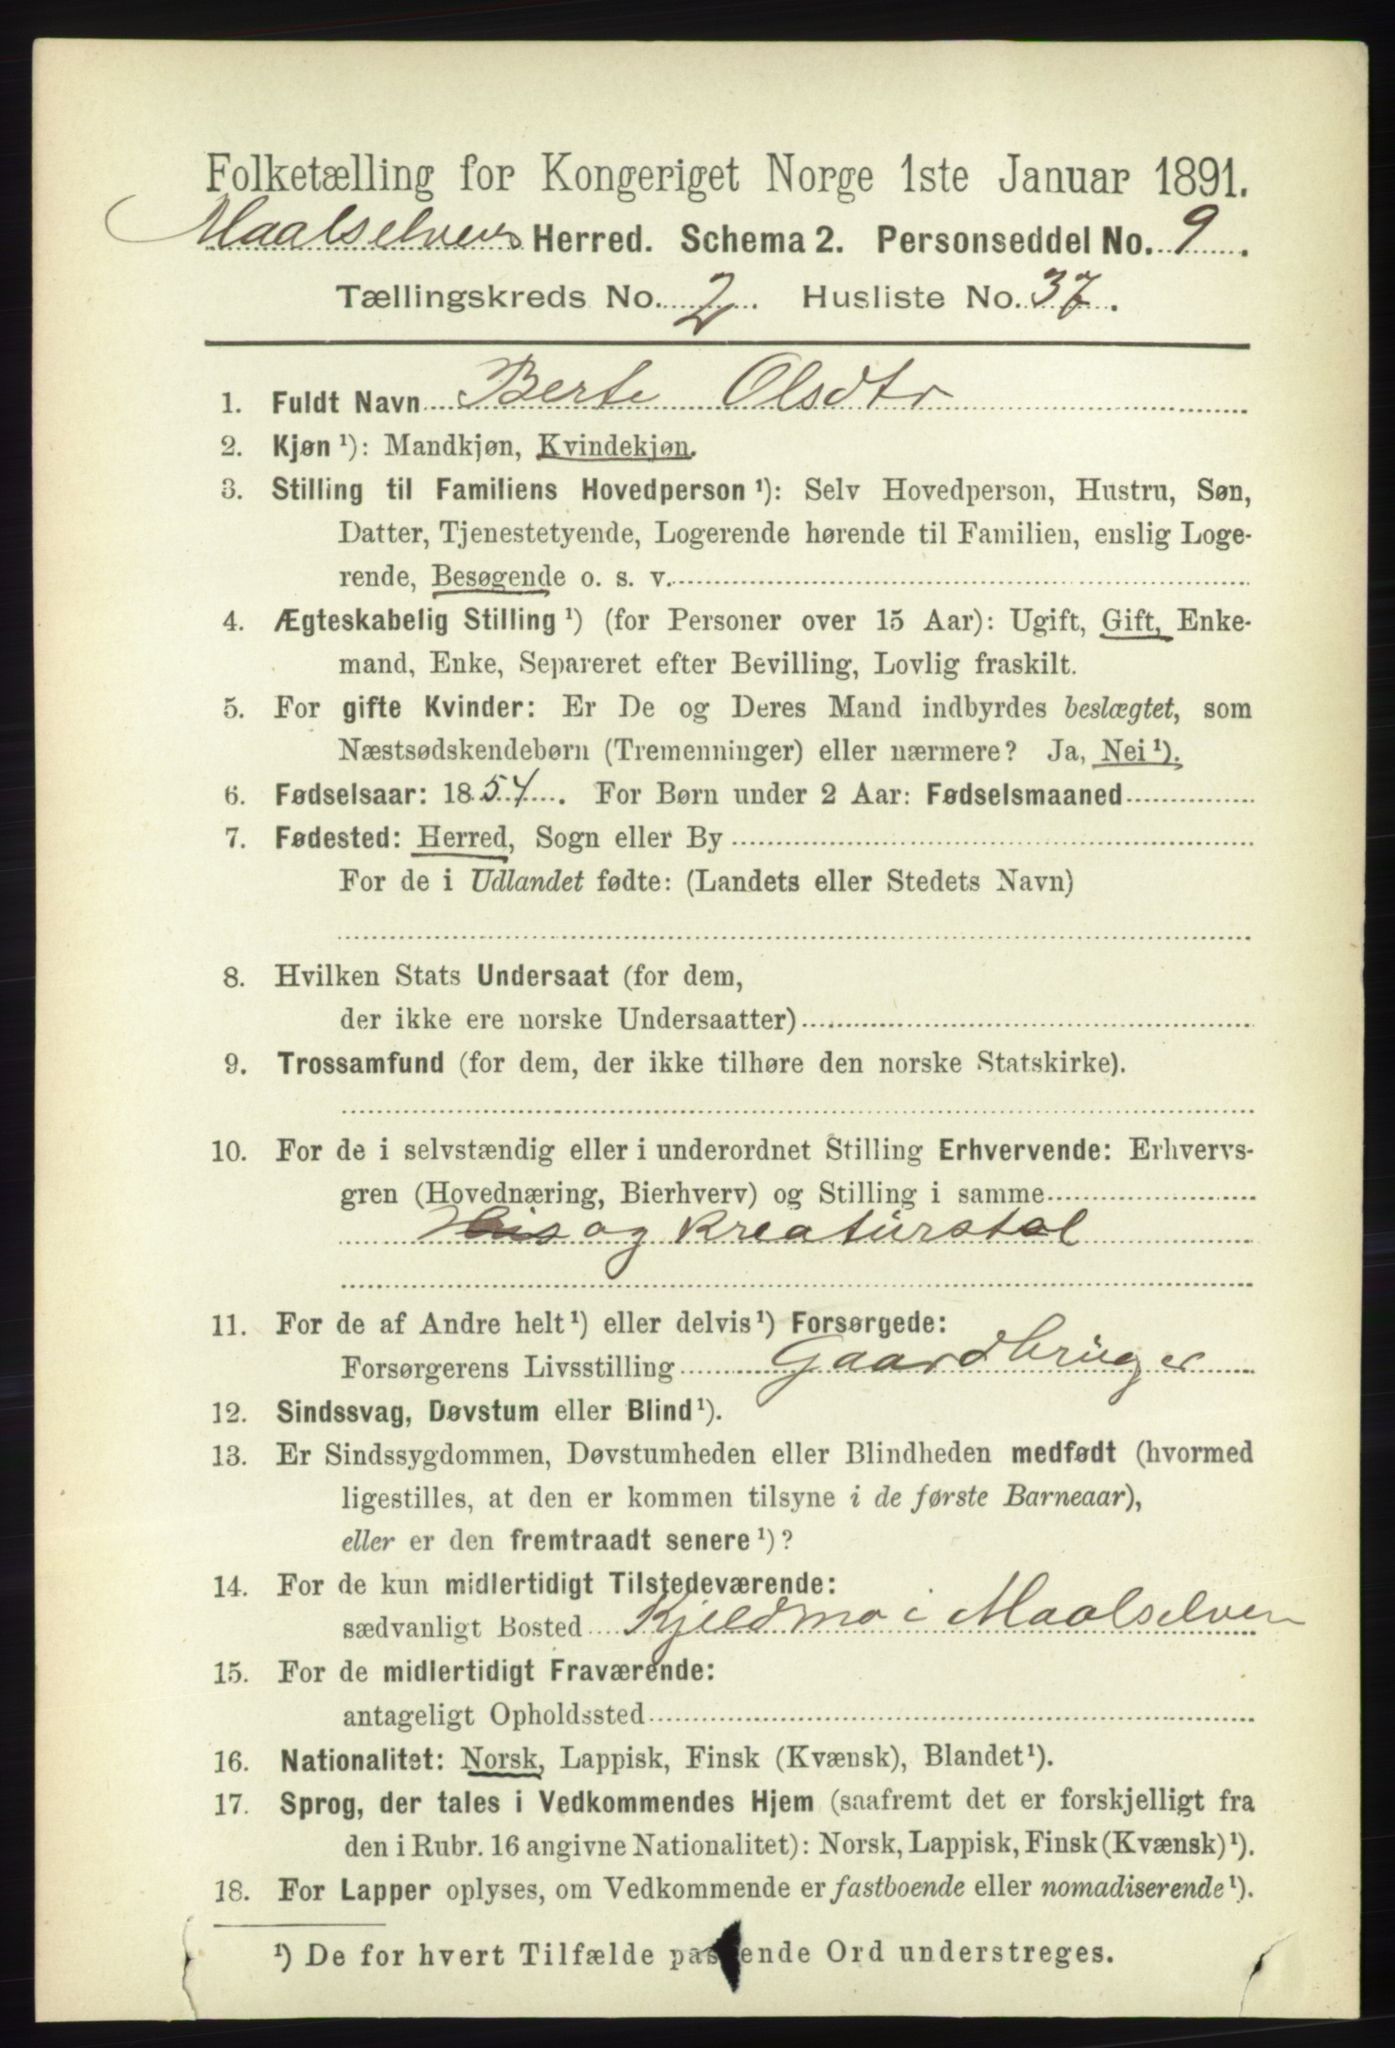 Folketælling for Kongeriget Norge 1ste Januar 1891.
Maalselvens Herred. Schema 2. Personseddel No. 9.
Tællingskreds No. 2. Husliste No. 37.
1. Fuldt Navn Berte Olsdtr
2. Kjøn ¹): Mandkjøn, Kvindekjøn.
3. Stilling til Familiens Hovedperson ¹): Selv Hovedperson, Hustru, Søn,
Datter, Tjenestetyende, Logerende hørende til Familien, enslig Loge-
rende, Besøgende o. s. v.
4. Ægteskabelig Stilling ¹) (for Personer over 15 Aar): Ugift, Gift, Enke-
mand, Enke, Separeret efter Bevilling, Lovlig fraskilt.
5. For gifte Kvinder: Er De og Deres Mand indbyrdes beslægtet, som
Næstsødskendebørn (Tremenninger) eller nærmere? Ja, Nei ¹).
6. Fødselsaar: 1854. For Børn under 2 Aar: Fødselsmaaned
7. Fødested: Herred, Sogn eller By
For de i Udlandet fødte: (Landets eller Stedets Navn)
8. Hvilken Stats Undersaat (for dem,
der ikke ere norske Undersaatter)
9. Trossamfund (for dem, der ikke tilhøre den norske Statskirke).
10. For de i selvstændig eller i underordnet Stilling Erhvervende: Erhvervs-
gren (Hovednæring, Bierhverv) og Stilling i samme
og kreaturstel
11. For de af Andre helt ¹) eller delvis ¹) Forsørgede:
Forsørgerens Livsstilling Gaardbruger
12. Sindssvag, Døvstum eller Blind ¹).
13. Er Sindssygdommen, Døvstumheden eller Blindheden medfødt (hvormed
ligestilles, at den er kommen tilsyne i de første Barneaar),
eller er den fremtraadt senere ¹)?
14. For de kun midlertidigt Tilstedeværende:
sædvanligt Bosted Kjeldmo i Maalselven
15. For de midlertidigt Fraværende:
antageligt Opholdssted
16. Nationalitet: Norsk, Lappisk, Finsk (Kvænsk), Blandet ¹).
17. Sprog, der tales i Vedkommendes Hjem (saafremt det er forskjelligt fra
den i Rubr. 16 angivne Nationalitet): Norsk, Lappisk, Finsk (Kvænsk) ¹).
18. For Lapper oplyses, om Vedkommende er fastboende eller nomadiserende ¹).
¹) De for hvert Tilfælde passende Ord understreges.